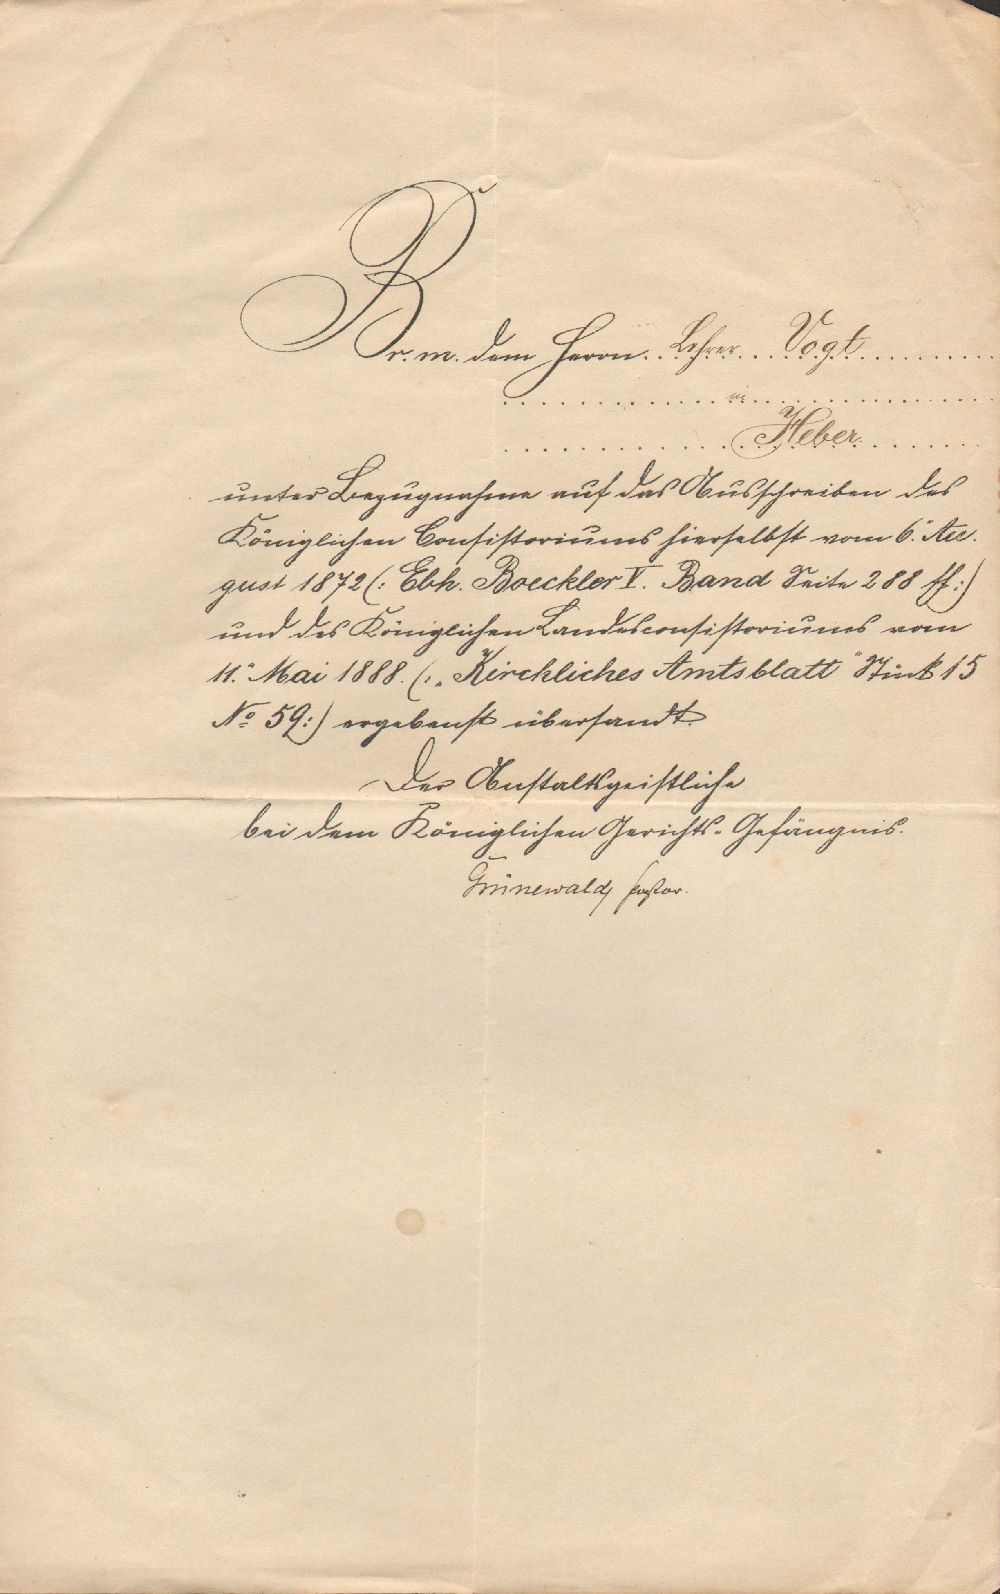 Br. m. dem Herrn Lehrer Vogt
in
Heber
unter Bezugnahme auf das Ausschreiben des
Königlichen Consistoriums hierselbst vom 6. Au-
gust 1872 (: Ebh. Boeckler V. Band Seite 288 ff:)
und des Königlichen Landesconsistoriums vom
11. Mai 1888. (: „Kirchliches Amtsblatt“ Stück 15
No 59:) ergebenst übersandt.
Der Anstaltsgeistliche
bei dem Königlichen Gerichts-Gefängnis.
Grünewald, Pastor.